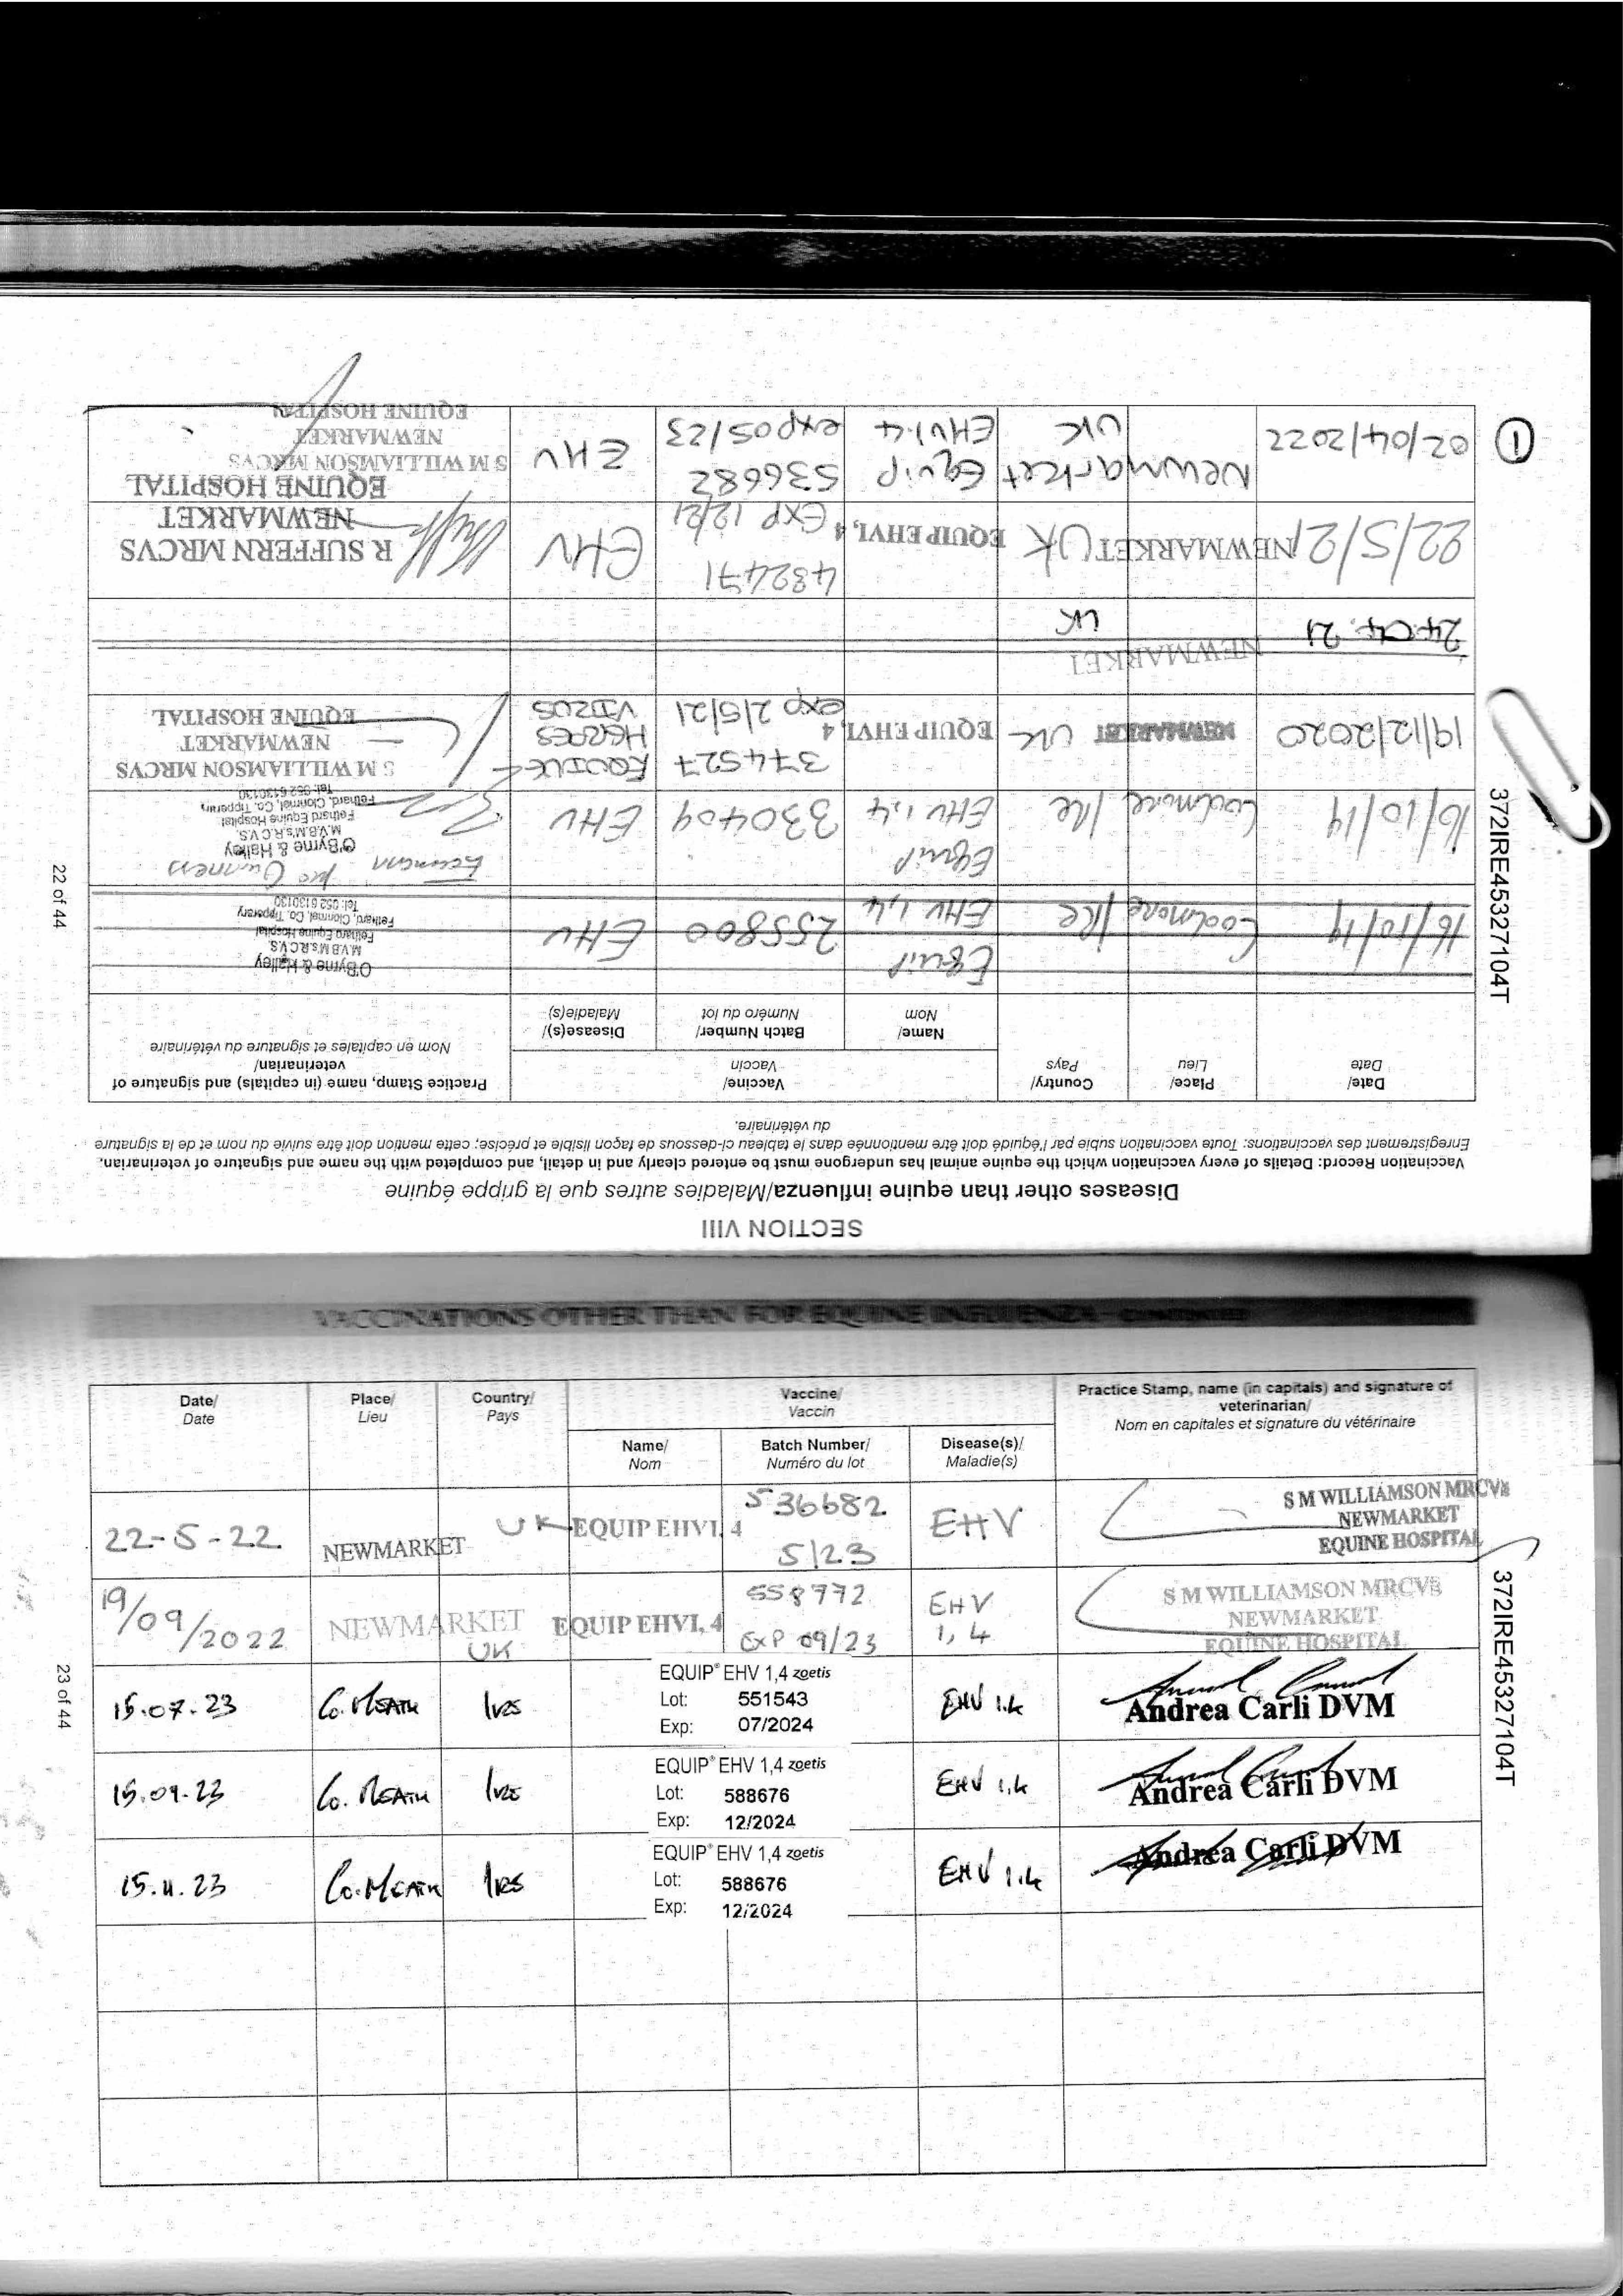 SECTION VIII
Diseases other than equine influenza/Maladies autres que la grippe équine
Vaccination Record: Details of every vaccination which the equine animal has undergone must be entered clearly and in detail, and completed with the name and signature of veterinarian.
Enregistrement des vaccinations: Toute vaccination subie par l'équidé doit être mentionnée dans le tableau ci-dessous de façon lisible et précise; cette mention doit être suivie du nom et de la signature
du vétérinaire.
Date/
Date
Place/
Lieu
Country/
Pays
Vaccine/
Vaccin
Practice Stamp, name (in capitals) and signature of
veterinarian/
Nom en capitales et signature du vétérinaire
Name/
Nom
Batch Number/
Numéro du lot
Disease(s)/
Maladie(s)
16/10/19 Coolmore Ire Equip
EHV 1,4 255800 EHV
O'Byrne & Halley
M.V.B.M's.R.C.V.S.
Fethard Equine Hospital
Fethard, Clonmel, Co. Tipperary
Tel: 052 6130130
16/10/19 Coolmore Ire Equip
EHV 1,4 330409 EHV
Eamonn
O'Byrne & Halley
M.V.B.M's.R.C.V.S.
Fethard Equine Hospital
Fethard, Clonmel, Co. Tipperary
Tel: 052 6130130
19/12/2020 NEWMARKET UK EQUIP EHV1, 4
374527
exp 2/5/21
EQUINE
HERPES
VIRUS
S M WILLIAMSON MRCVS
NEWMARKET
EQUINE HOSPITAL
24.04.21 NEWMARKET
UK
22/5/21 NEWMARKET UK EQUIP EHV1, 4
432471
EXP 12/21
EHV
R SUFFERN MRCVS
NEWMARKET
EQUINE HOSPITAL
02/04/2022 Newmarket
UK
Equip
EHV1.4
536682
exp05/23
EHV
S M WILLIAMSON MRCVS
NEWMARKET
EQUINE HOSPITAL
1
372IRE45327104T
22 of 44
VACCINATIONS OTHER THAN FOR EQUINE INFLUENZA - CONTINUED
Date/
Date
Place/
Lieu
Country/
Pays
Vaccine/
Vaccin
Practice Stamp, name (in capitals) and signature of
veterinarian/
Nom en capitales et signature du vétérinaire
Name/
Nom
Batch Number/
Numéro du lot
Disease(s)/
Maladie(s)
22-5-22 NEWMARKET UK EQUIP EHV1, 4
536682
5/23
EHV
S M WILLIAMSON MRCVS
NEWMARKET
EQUINE HOSPITAL
19/09/2022 NEWMARKET
UK
EQUIP EHV1, 4
558772
EXP 09/23
EHV
1, 4
S M WILLIAMSON MRCVS
NEWMARKET
EQUINE HOSPITAL
15.07.23 Co. MEATH IRE
EQUIP® EHV 1,4 zoetis
Lot: 551543
Exp: 07/2024
EHV 1.4
Andrea Carli DVM
15.09.23 Co. MEATH IRE
EQUIP® EHV 1,4 zoetis
Lot: 588676
Exp: 12/2024
EHV 1,4
Andrea Carli DVM
15.11.23 Co. MEATH IRE
EQUIP® EHV 1,4 zoetis
Lot: 588676
Exp: 12/2024
EHV 1.4
Andrea Carli DVM
372IRE45327104T
23 of 44